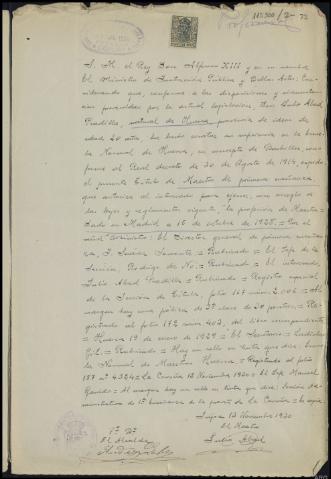 S. M. el Rey Don Alfonso XIII y en su nombre
El Ministro de Instrucción Pública y Bellas Artes: Con-
siderando que, conforme a las disposiciones y circunstan-
cias prevenidas por la actual legislación, Don Julio Abad
Pradilla, natural de Huesca provincia de idem de
edad 20 años, ha hecho constar su suficiencia en la Escue-
la Normal de Huesca, en concepto de Bachiller, con-
forme al Real decreto de 30 de Agosto de 1914, expido
el presente Título de Maestro de primera enseñanza
que autoriza al interesado para ejercer, con arreglo a
las leyes y reglamentos vigentes, la profesión de Maestro =
Dado en Madrid a 16 de octubre de 1928. = Por el
señor Ministro: El Director general de primera enseñan-
za, = Rubricado = El Jefe de la
Sección, Rodrigo de = Rubricado = El interesado,
Julio Abad Pradilla = Rubricado = Registro especial
de la Sección de Títulos, folio 167 núm 2.006 = Al
margen hay una póliza de clase de pesetas, = Re-
gistrado al folio 192 núm 403, del libro correspondiente
= Huesca 19 de enero de 1929 = El Secretario =
Gil = Rubricado = Hay un sello en tinta que dice: Escue-
la Normal de Maestros Huesca = Registrado al folio
157 nº 4324 = La Coruña 12 Noviembre 1930 = El Jefe Manuel
= Al margen hay un sello en tinta que dice: Sección Ad-
ministrativa de 1ª Enseñanza de la provª de La Coruña = Es copia
13 Noviembre 1930
Vº Bº
El Alcalde
El Maestro
Julio Abad